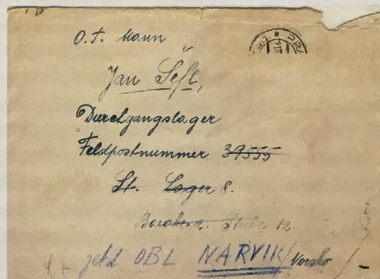 O.T. Mann
Jan Šefl,
Durchgangslager
Feldpostnummer 39555
St. Lager 8.
12
jetzt OBL NARVIK/Norsko